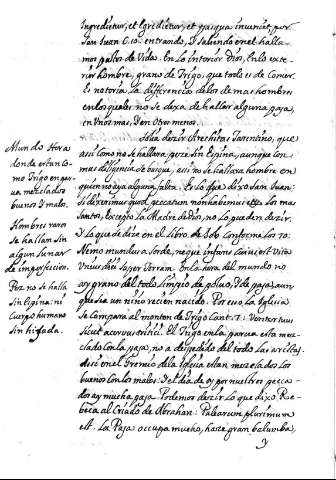 Ingredietur, et Egredietur, et pasqua inveniet, por
San Iuan C. 10. entrando, I saliendo en el halla
mos pasto de Vida. En lo interior Dios, En lo exte
rior hombre, grano de Trigo, que todo es de Comer.
Es notoria la differencia de los de mas hombres
en los quales no se dexa de hallar alguna paja,
en Unos mas, I en otros menos.
Solia dezir Architas Tarentino, que
assi como no se hallara peze sin Espina, aunque con
mas diligencia se busque, assi no se hallara hombre en
quien no aya alguna falta. Es lo que dixo San Iuan:
Si dixerimus quod peccatum non habemus
Santos, Excepto La Madre de dios, no lo pueden dezir.
I Lo que se dize en el Libro de Iob Conforme Los 70.
Nemo mundus a sorde, neque infans cuius est vita
Unius diei super terram. En la hera del mundo no
ay grano del todo limpio de polvo, I de paja, aun
que sea un niño recien nacido. Por eso la Iglesia
se Compara al monton de Trigo Cant. 7. Venter tuus
sicut acervus tritici. El Trigo en la parva esta mez
clado con la paja, no a despedido del todo las aristas.
assi en el Gremio de la Iglesia estan mezclados los
buenos con los malos. I el dia de oy por nuestros pecca
dos ay mucha paja. Podemos dezir lo que dixo Re
beca al Criado de Abrahan: Palearum plurimum
est. La Paja occupa mucho, haze gran balumba,
y
Mundo Hera
donde estan co
mo Trigo en pa
rva mezclados
buenos I malos.
Hombres raros
se hallan sin
algun senar
de imperfeccion.
Pez no se halla
sin Espina: ni
Cuerpo humano
sin higada.